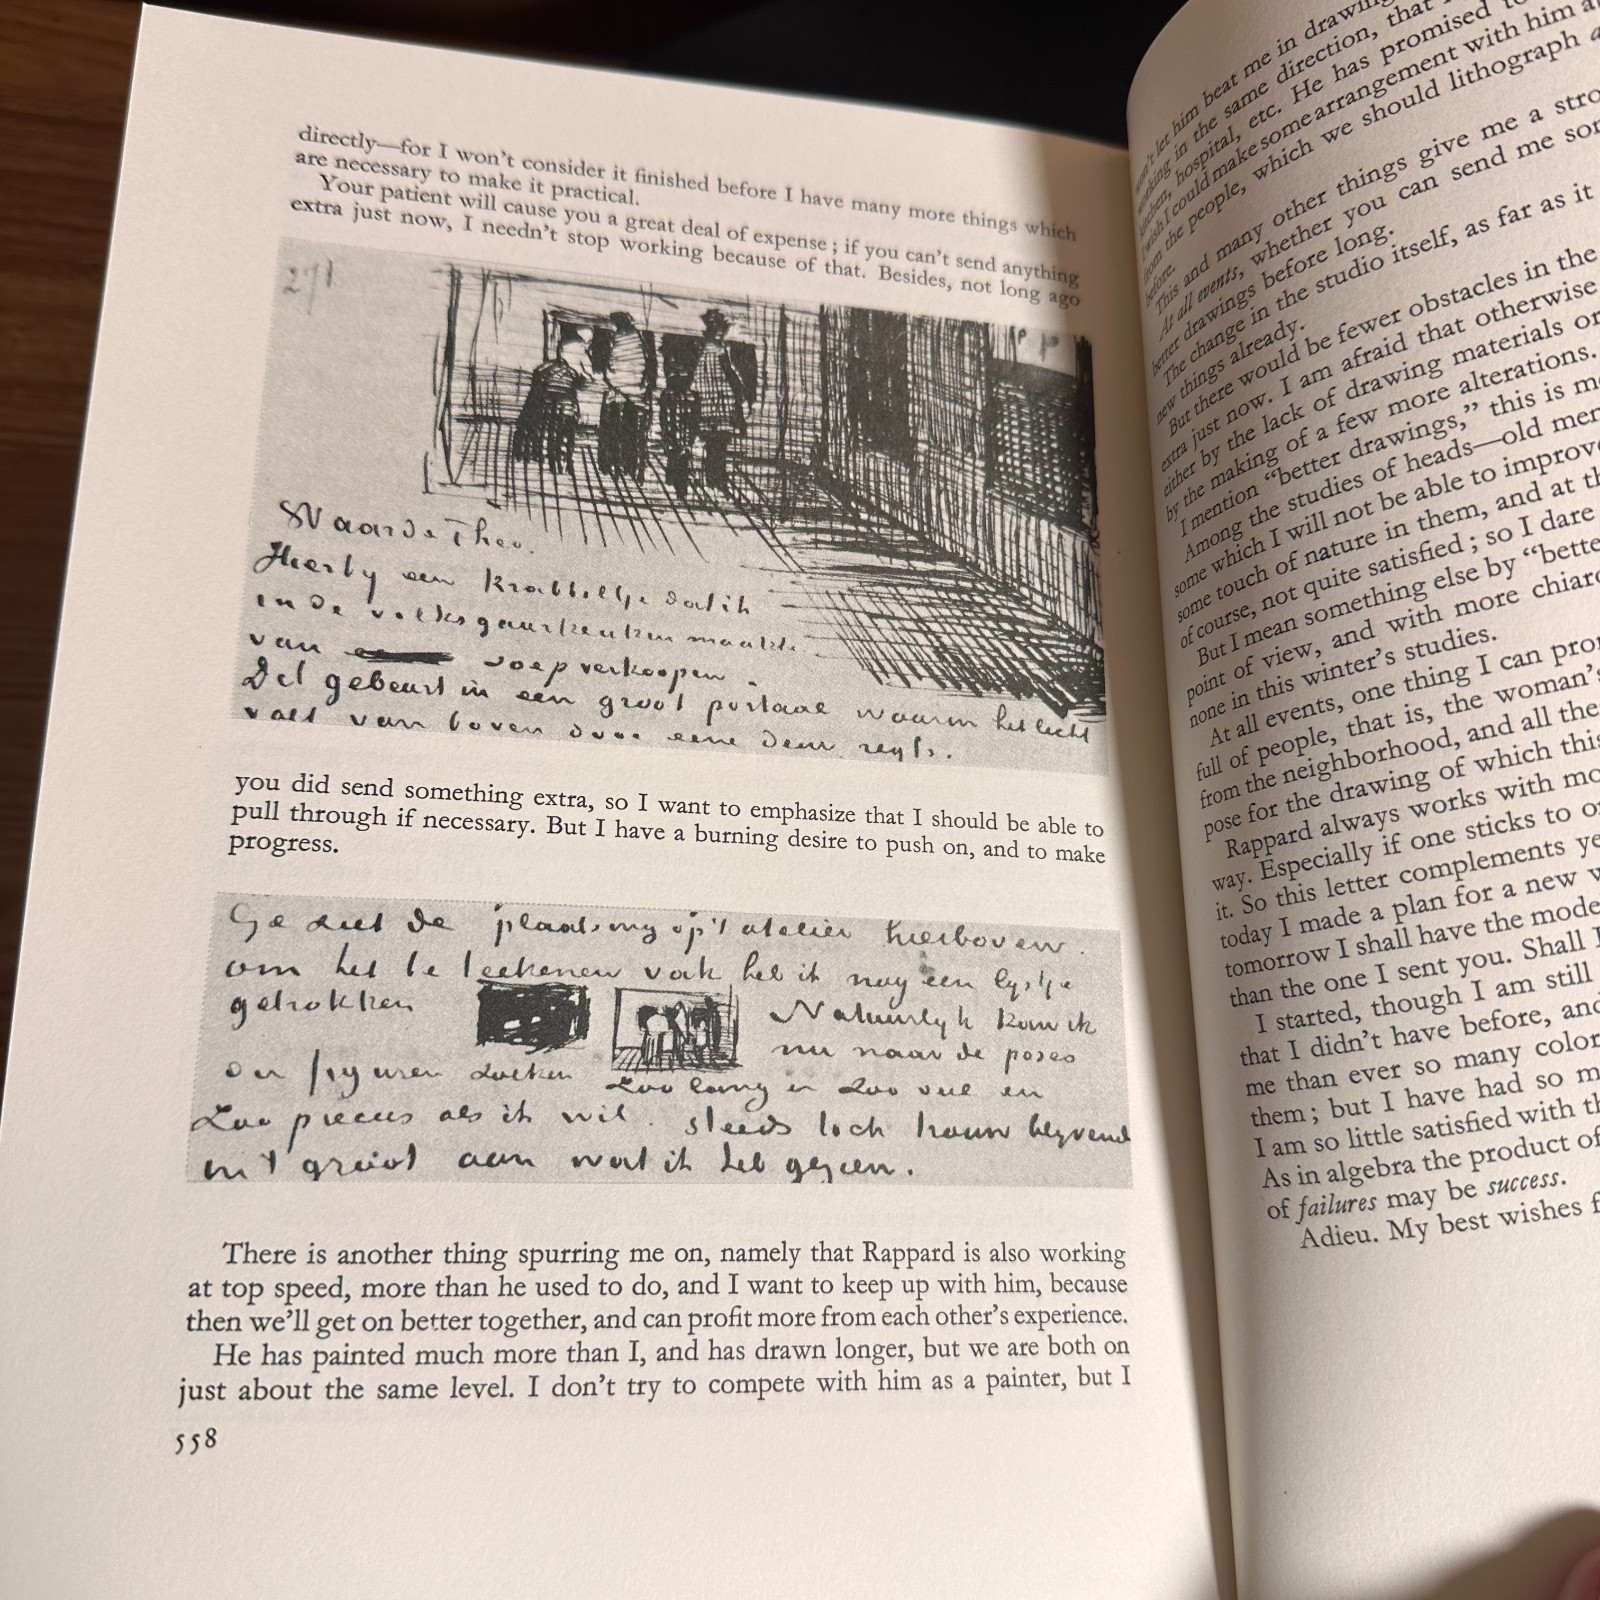 directly—for I won't consider it finished before I have many more things which
are necessary to make it practical.
Your patient will cause you a great deal of expense; if you can't send anything
extra just now, I needn't stop working because of that. Besides, not long ago
271
Waarde Theo.
Hierby een krabbeltje dat ik
in de volksgaarkeuken maakte.
van soep verkoopen.
Det gebeurt in een groot portaal waarin het licht
valt van boven door eene deur regts.
you did send something extra, so I want to emphasize that I should be able to
pull through if necessary. But I have a burning desire to push on, and to make
progress.
Ge ziet de plaatsing op 't atelier hierboven.
om het te teekenen vak heb ik nog een lystje
getrokken
Natuurlyk kom ik
nu naar de poses
en figuren zoeken zoo lang en zoo veel en
zoo precies als ik wil. steeds toch trouw blyvend
in 't groot aan wat ik heb gezien.
There is another thing spurring me on, namely that Rappard is also working
at top speed, more than he used to do, and I want to keep up with him, because
then we'll get on better together, and can profit more from each other's experience.
He has painted much more than I, and has drawn longer, but we are both on
just about the same level. I don't try to compete with him as a painter, but I
558
won't let him beat me in drawing
working in the same direction, that
kitchen, hospital, etc. He has promised to
I wish I could make some arrangement with him
from the people, which we should lithograph
before.
This and many other things give me a
At all events, whether you can send me
better drawings before long.
The change in the studio itself, as far as it
new things already.
But there would be fewer obstacles in the
extra just now. I am afraid that otherwise
either by the lack of drawing materials or
by the making of a few more alterations.
I mention "better drawings," this is
Among the studies of heads—old men
some which I will not be able to improve
some touch of nature in them, and at
of course, not quite satisfied; so I dare
But I mean something else by
point of view, and with more
none in this winter's studies.
At all events, one thing I can
full of people, that is, the woman's
from the neighborhood, and all the
pose for the drawing of which this
Rappard always works with
way. Especially if one sticks to
it. So this letter complements
today I made a plan for a new
tomorrow I shall have the
than the one I sent you. Shall I
I started, though I am still
that I didn't have before, and
me than ever so many
them; but I have had so
I am so little satisfied with
As in algebra the product of
of failures may be success.
Adieu. My best wishes